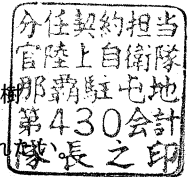 分任契約担当
官陸上自衛隊
那覇駐屯地
第430会計
隊長之印
樹
いたい。